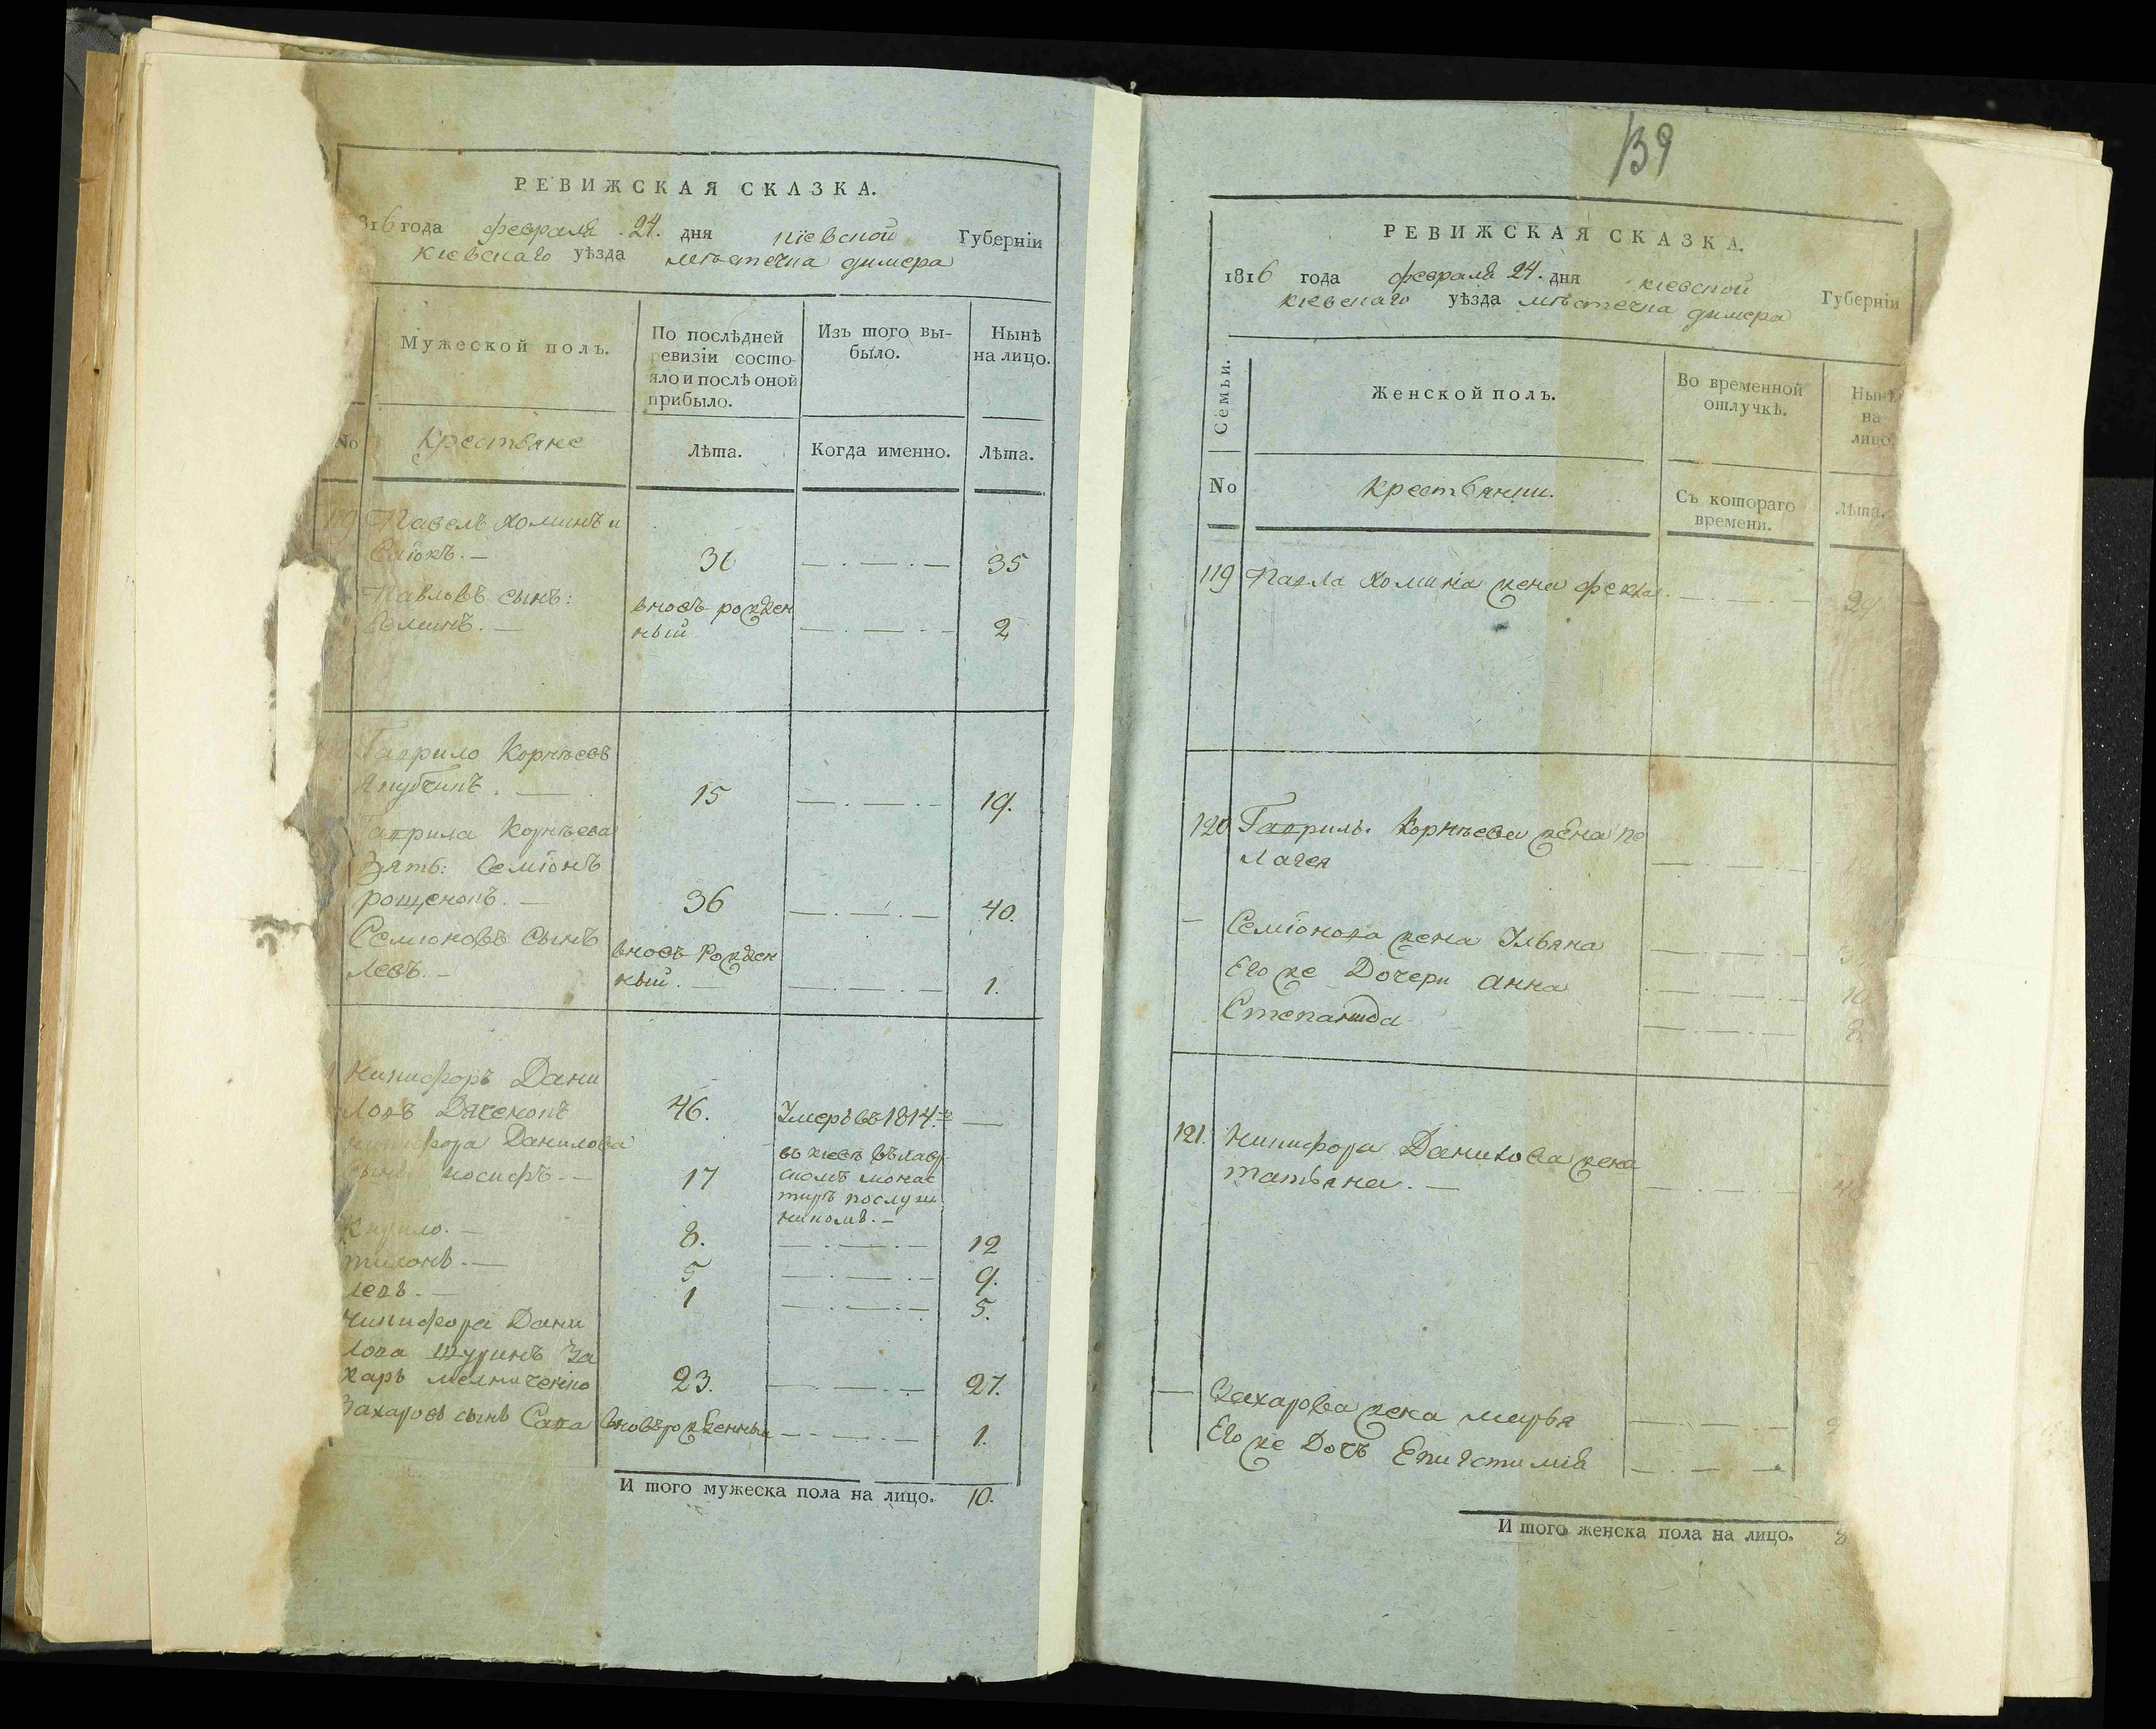 РЕВИЖСКАЯ СКАЗКА.
816 года февраля 24. дня кіевской Губерніи
кіевскаго уѣзда мѣстечка димера
Мужеской полъ.
По послѣдней
ревизіи состо-
яло и послѣ оной
прибыло.
Изъ того вы-
было.
Нынѣ
на лицо.
No
крестьяне
Лѣта.
Когда именно.
Лѣта.
119 Павелъ Хоминъ
36 35
Павловъ сынъ:
вновь рожден
ный 2
Гаврило Корнѣевъ
15 19.
Гаврила Корнѣева
Зять: Семіонъ
рощенокъ. 36 40.
Семіоновъ сынъ
Левъ. вновь рожден
ный. 1.
Никифоръ Дани
ловъ Дяченокъ 46. Умеръ въ 1814.
никифора Данилова
сынъ иосифъ. 17
въ кіевѣ въ лавр
скомъ монас
тирѣ послуш
никомъ.
Кирило. 8. 12
тихонъ. 5 9.
левъ. 1 5.
Никифора Дани
лова Шуринъ За
харъ мелниченко 23. 27.
Захаровъ сынъ Сава вновьрожденный 1.
И того мужеска пола на лицо. 10.
139
РЕВИЖСКАЯ СКАЗКА.
1816 года февраля 24. дня кіевской Губерніи
кіевскаго уѣзда мѣстечка димера
Семьи.
Женской полъ.
Во временной
отлучкѣ.
Нынѣ
на
лицо.
No
крестьянки.
Съ котораго
времени.
Лѣта.
119 Павла Хомина жена фекла.
120 Гаврилы Корнѣева жена пе
лагея
Семіонова жена Ульяна
Его же Дочери анна 10.
Степанида 8.
121. Никифора Данилова жена
татьяна.
Захарова жена марья
Его же Дочь Епистимія
И того женска пола на лицо. 8